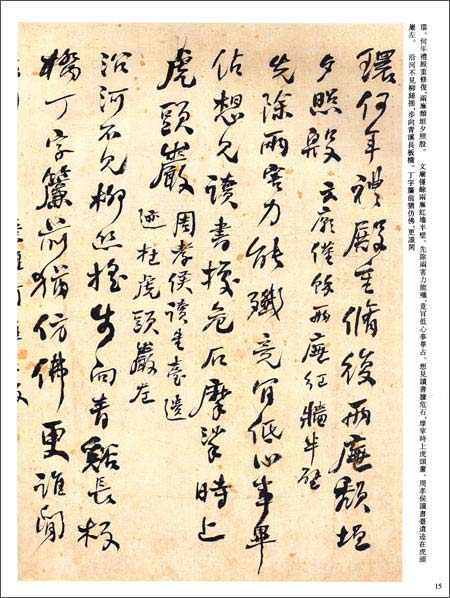 環。何年禮殿重修復,兩廡頹垣夕照殷。 文廟僅餘兩廡紅墻半壁。 先除兩害力能殲,竟肯低心事畢占。想見讀書據危石,摩挲時上虎頭巖。 周孝侯讀書臺遺迹在虎頭
崖左。 沿河不見柳絲搖,步向青溪長板橋。丁字簾前猶仿佛,更誰聞
環何年禮殿重脩復兩廡頹垣
夕照殷 文廟僅餘兩廡紅牆半壁
先除兩害力能殲竟肯低心事畢
佔想見讀書據危石摩挲時上
虎頭巖 周孝侯讀書臺遺
迹在虎頭巖左
沿河不見柳絲搖步向青谿長板
橋丁字簾前猶仿佛更誰聞
15